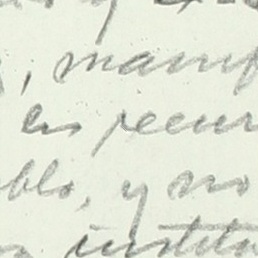 , manif
en recur
blo, y no
institu